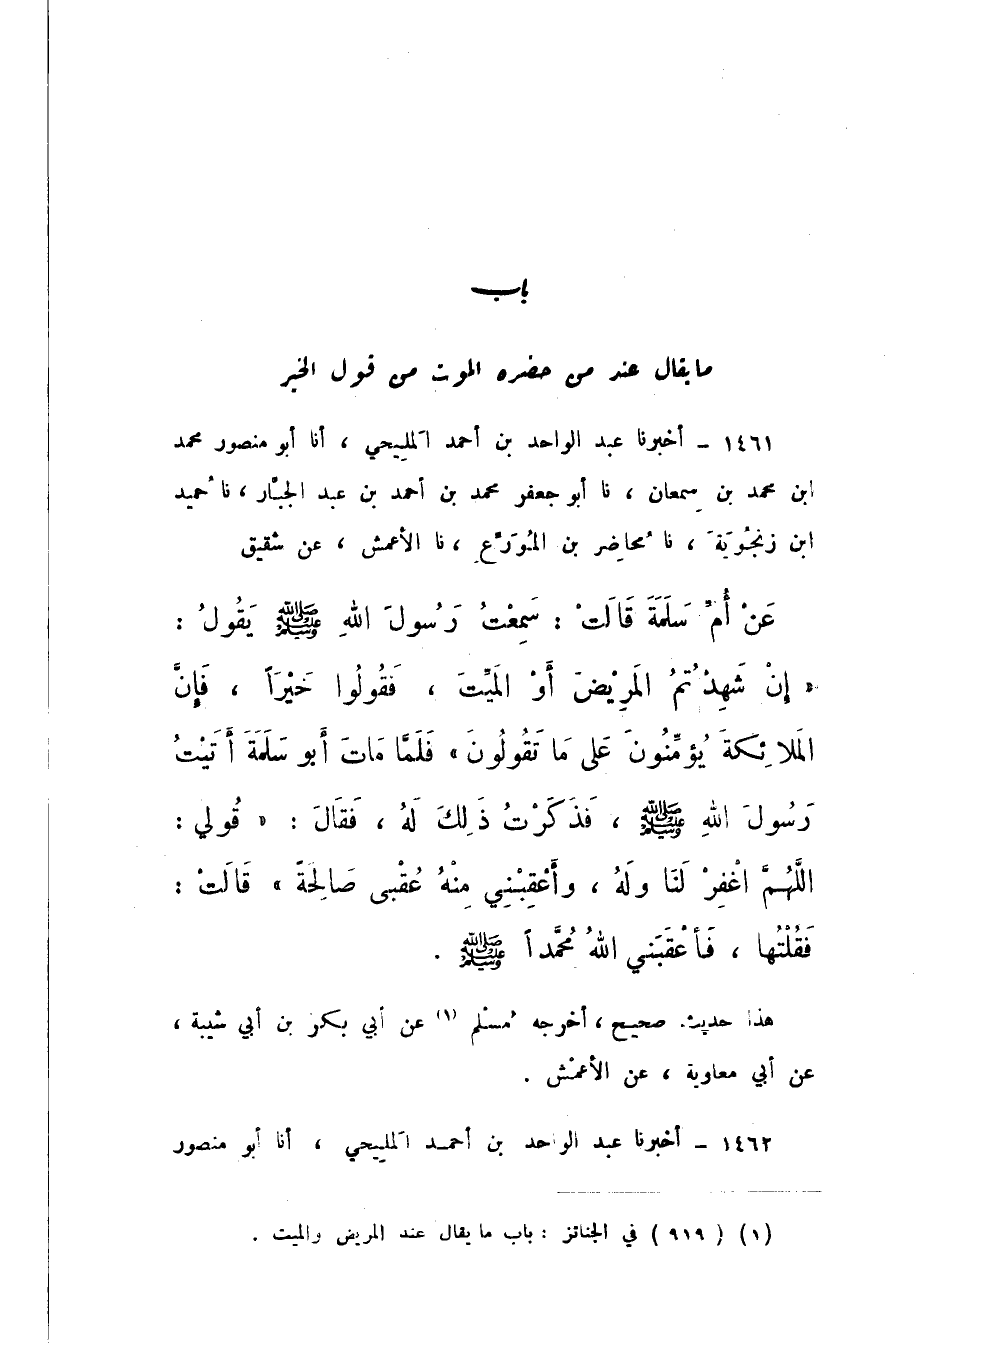 باب
ما يقال عند من حضره الموت من قول الخير
١٤٦١ – أخبرنا عبد الواحد بن أحمد المَليِحي ، أنا أبو منصور محمد
ابن محمد بن سِمعان ، نا أبو جعفر محمد بن أحمد بن عبد الجبَّار ، نا حُميد
ابن زنجُويَةَ ، نا مُحاضِر بن المُوَرِّعِ ، نا الأعمش ، عن شقيق
عَنْ أُمِّ سَلَمَةَ قَالَتْ : سَمِعْتُ رَسُولَ اللهِ ﷺ يَقُولُ :
« إِنْ شَهِدْتُمُ المَرِيْضَ أَوْ المَيِّتَ ، فَقُولُوا خَيْرَاً ، فَإِنَّ
المَلائِكَةَ يُؤَمِّنُونَ عَلى مَا تَقُولُونَ » فَلَمَّا مَاتَ أَبو سَلَمَةَ أَتَيْتُ
رَسُولَ اللهِ ﷺ ، فَذَكَرْتُ ذَلِكَ لَهُ ، فَقَالَ : « قُولي :
اللَّهُمَّ اغْفِرْ لَنَا ولَهُ ، وأَعْقِبْنِي مِنْهُ عُقْبى صَالِحَةً » قَالَتْ :
فَقُلْتُها ، فَأَعْقَبَني اللهُ مُحَمَّداً ﷺ .
هذا حديث صحيح ، أخرجه مُسْلم (١) عن أبي بكر بن أبي شيبة ،
عن أبي معاوية ، عن الأعمَش .
١٤٦٢ – أخبرنا عبد الواحد بن أحمد المَليِحي ، أنا أبو منصور
(١) ( ٩١٩ ) في الجنائز : باب ما يقال عند المريض والميت .